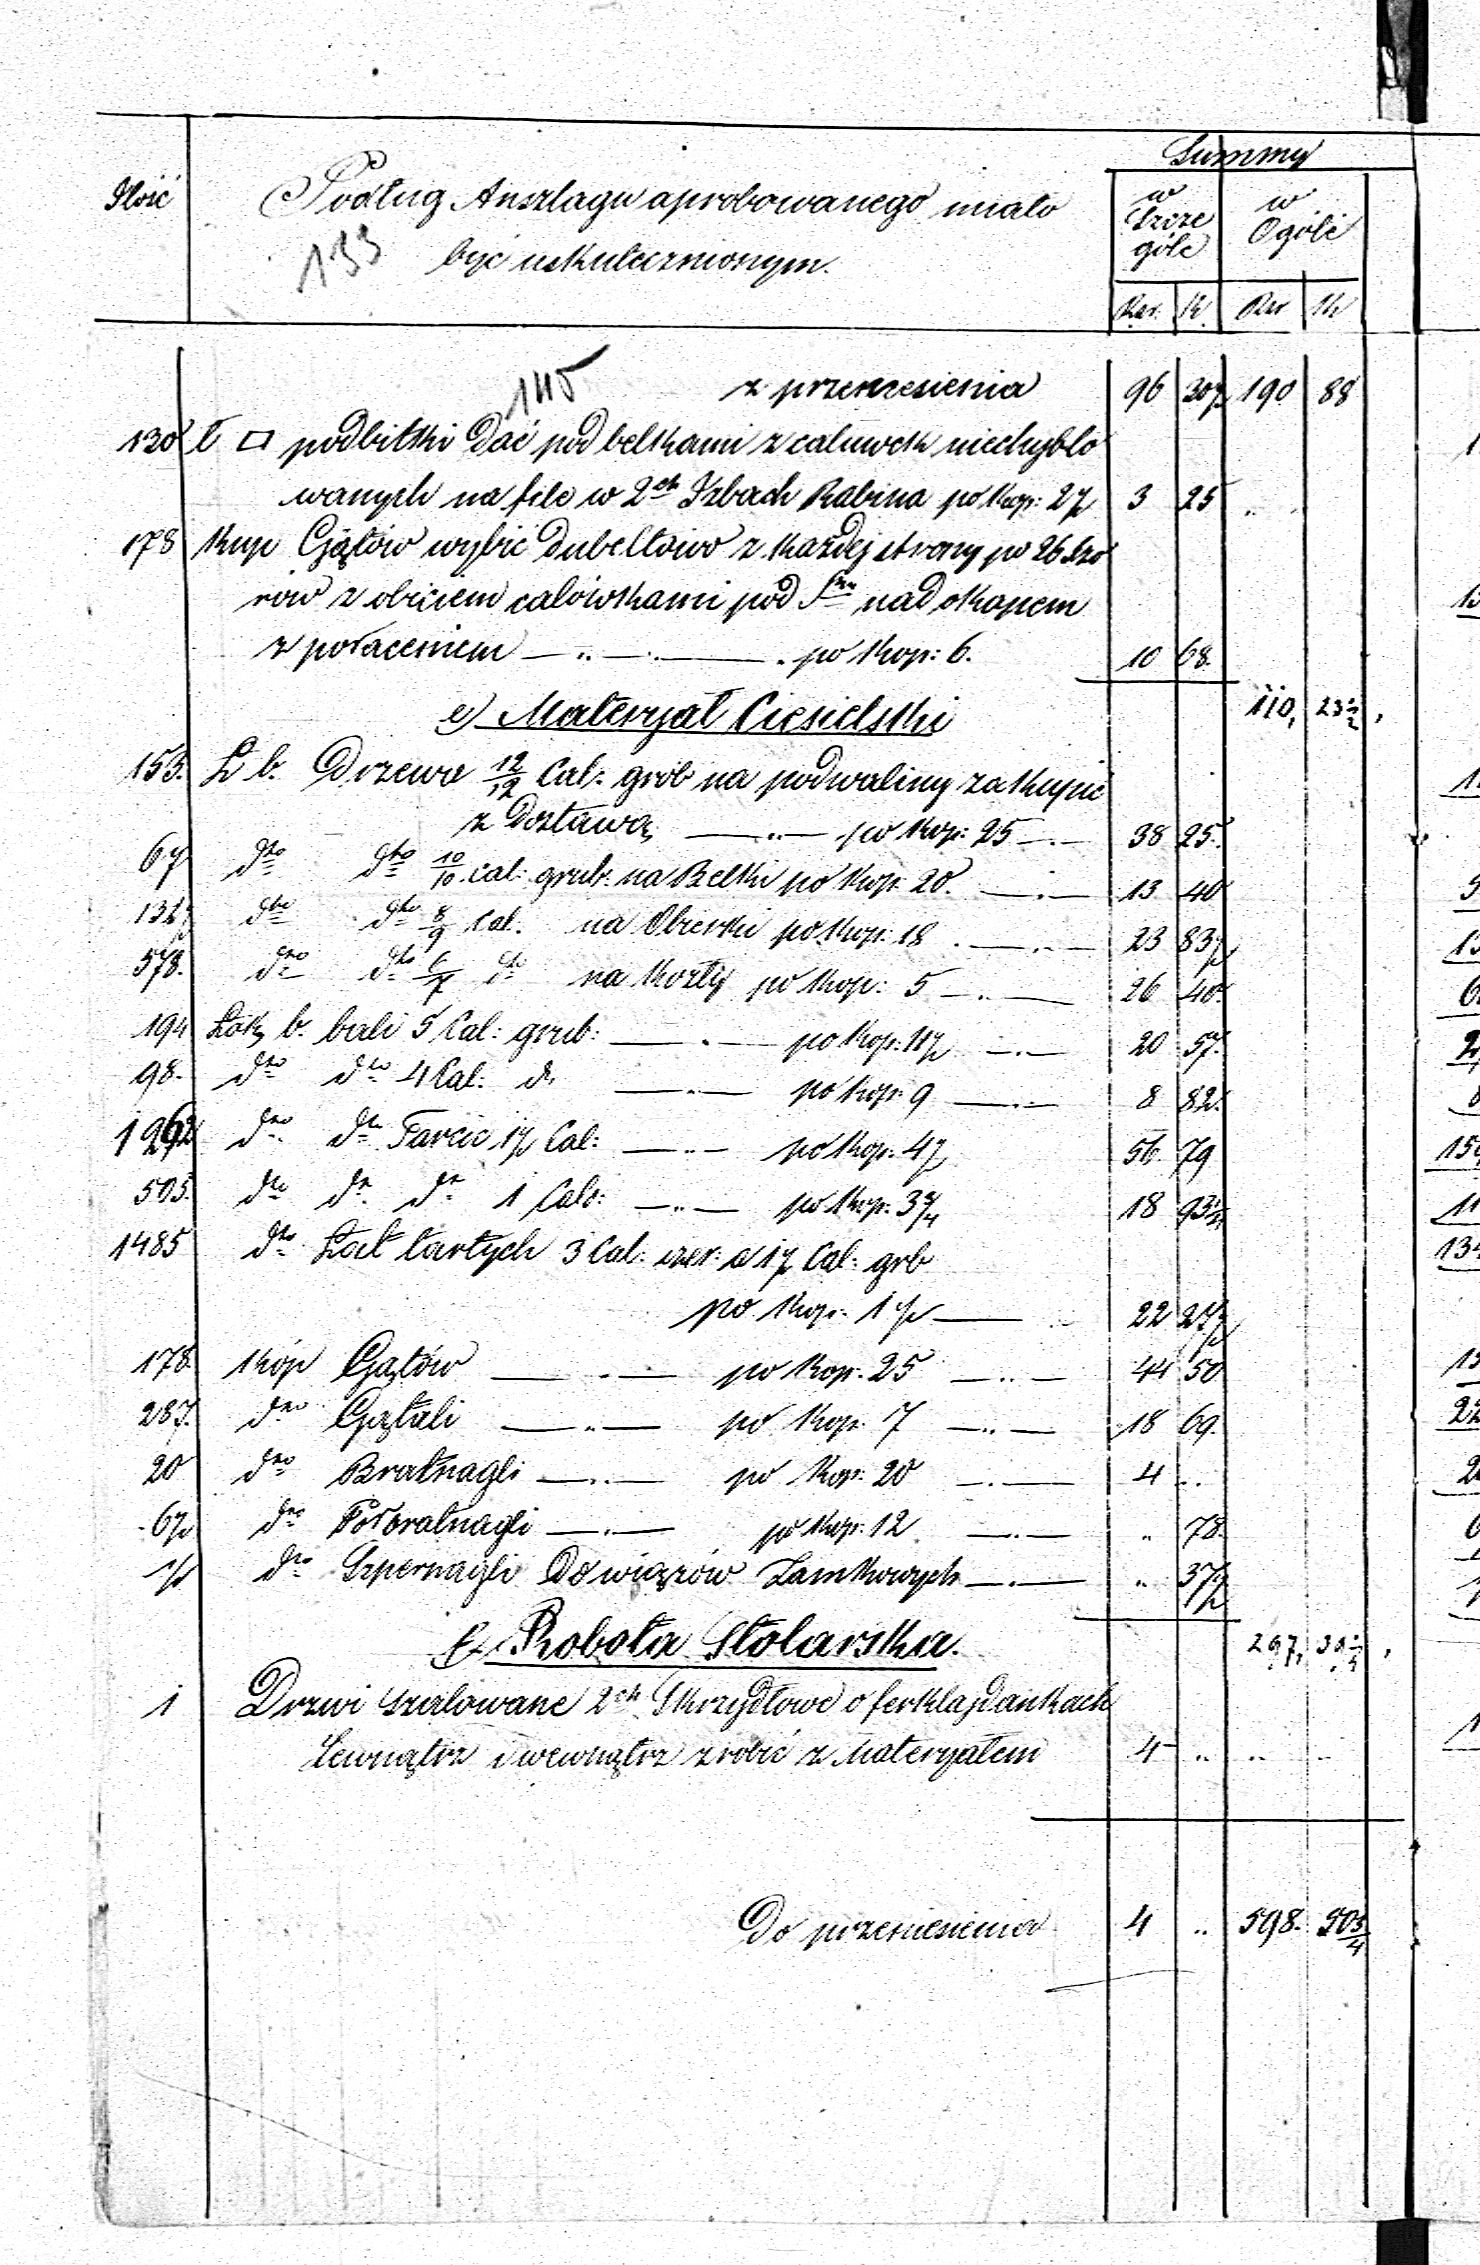 Summy
Ilość
Podług Anszlagu aprobowanego miało
być uskutecznionym.
133
w Szczególe
w Ogóle
Rsr. K. Rsr K
115
z przeniesienia 96 30½ 190 88
130 ł □ podbitki dać pod belkami z calówek niehyblo
wanych na felc w 2ch Izbach Rabina po kop: 2½ 3 25 " "
178 kup Gątów wybić dubeltowo z każdej strony po 26 szo
rów z obiciem calówkami pod nad okapem
z połaceniem — " — " — po kop: 6. 10 68.
110, 23½
e) Materyał Ciesielski
153. Ł b. Drzewa 12/12 Cal: grób na podwaliny zakupić
z Dostawą — " — po kop: 25 — " — 38 25.
67 dto dto 10/10 cal: grub. na Belki po kop. 20. — " — 13 40
132½ dto dto 8/9 Cal. na Obierki po kop: 18 — " — 23 83½
578. dto dto 6/7 dto na kozły po kop: 5 — " — 26 40.
194 Łok b. bali 5 Cal: grub: — " — po kop: 11½ — " — 20 57.
98. dto dto 4 Cal: dto — " — po kop: 9 — " — 8 82.
1262 dto dto Tarcic 1½ Cal: — " — po kop: 4½ 56 79
505. dto dto dto 1 Calo: — " — po kop: 3¾ 18 93¾
1485 dto Łat tartych 3 Cal: szer: a 1½ Cal: grb
po kop: 1½ — 22 27½
178 kóp Gątów — " — po kop. 25 — " — 44 50
287. dto Gątali — " — po kop. 7 — " — 18 69.
20 dto Bratnagli — " — po kop: 20 — " — 4 "
6½ dto Półbratnagli — " — po kop: 12 — " — " 78.
½ dto Szpernagli do wiązrów Zamkowych — " — " 37½
297,
f. Robota Stolarska.
1 Drzwi szalowane 2ch Skrzydłowe o ferklajdankach
zewnątrz i wewnątrz zrobić z Materyałem 4 " " "
Do przeniesienia 4 " 598. 50¾